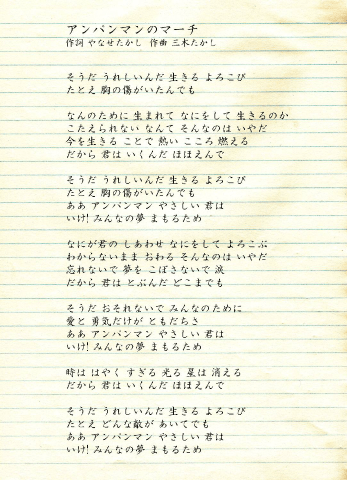 アンパンマンのマーチ
作詞 やなせたかし 作曲 三木たかし
そうだ うれしいんだ 生きる よろこび
たとえ 胸の傷がいたんでも
なんのために 生まれて なにをして 生きるのか
こたえられない なんて そんなのは いやだ
今を生きる ことで 熱い こころ 燃える
だから 君は いくんだ ほほえんで
そうだ うれしいんだ 生きる よろこび
たとえ 胸の傷がいたんでも
ああ アンパンマン やさしい 君は
いけ! みんなの夢 まもるため
なにが君の しあわせ なにをして よろこぶ
わからないまま おわる そんなのは いやだ
忘れないで 夢を こぼさないで 涙
だから 君は とぶんだ どこまでも
そうだ おそれないで みんなのために
愛と 勇気だけが ともだちさ
ああ アンパンマン やさしい 君は
いけ! みんなの夢 まもるため
時は はやく すぎる 光る 星は 消える
だから 君は いくんだ ほほえんで
そうだ うれしいんだ 生きる よろこび
たとえ どんな敵が あいてでも
ああ アンパンマン やさしい 君は
いけ! みんなの夢 まもるため